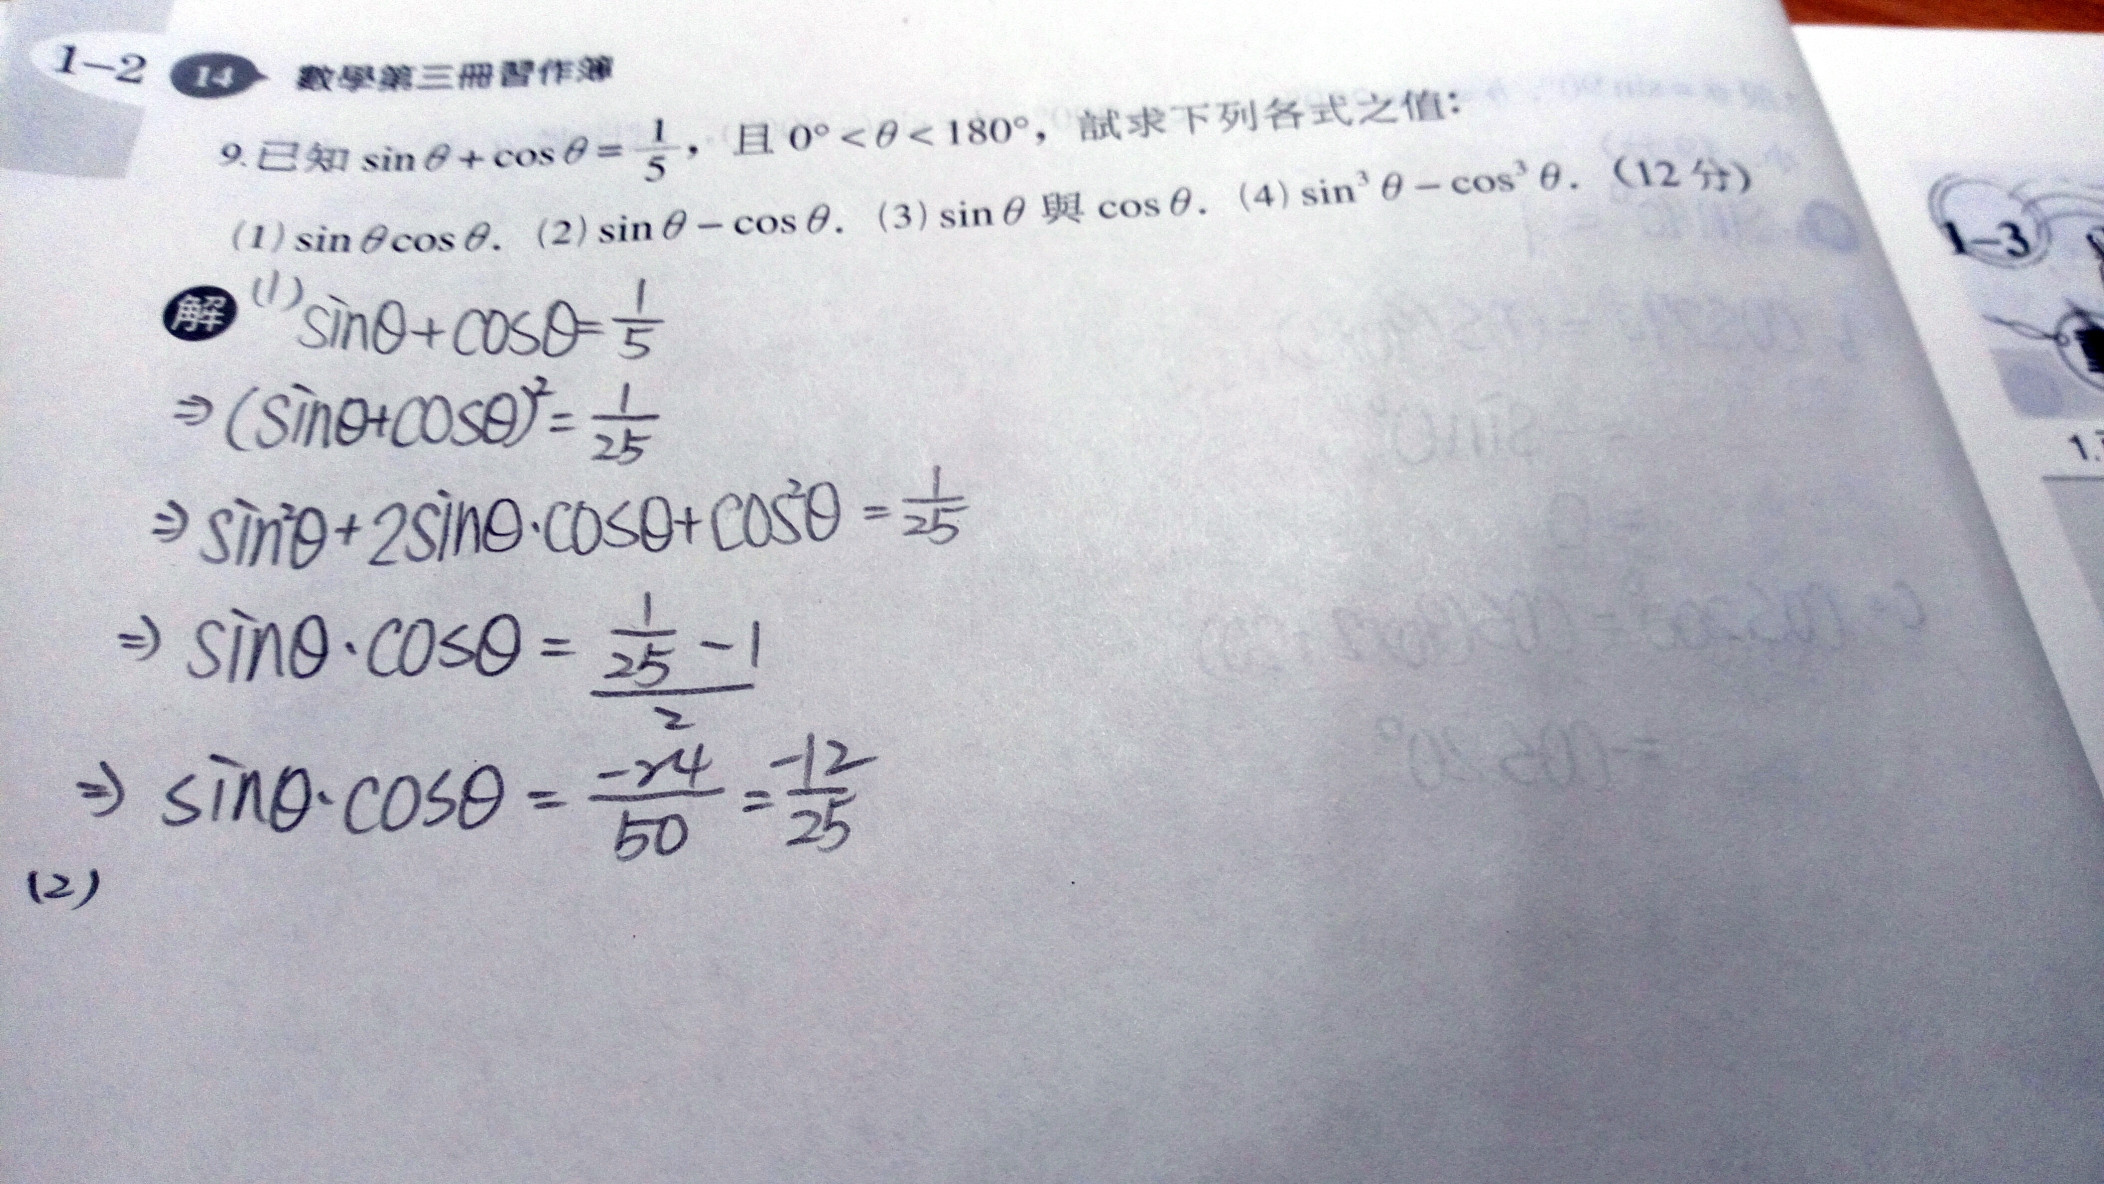 1-2 14 數學第三冊習作簿
9. 已知 sin θ + cos θ = 1/5，且 0° < θ < 180°，試求下列各式之值：
(1) sin θ cos θ. (2) sin θ − cos θ. (3) sin θ 與 cos θ. (4) sin³ θ − cos³ θ. (12 分)
解 (1) sinθ+cosθ=1/5
⇒ (sinθ+cosθ)²=1/25
⇒ sin²θ+2sinθ·cosθ+cos²θ=1/25
⇒ sinθ·cosθ=(1/25-1)/2
⇒ sinθ·cosθ=-24/50=-12/25
(2)
1-3
1.